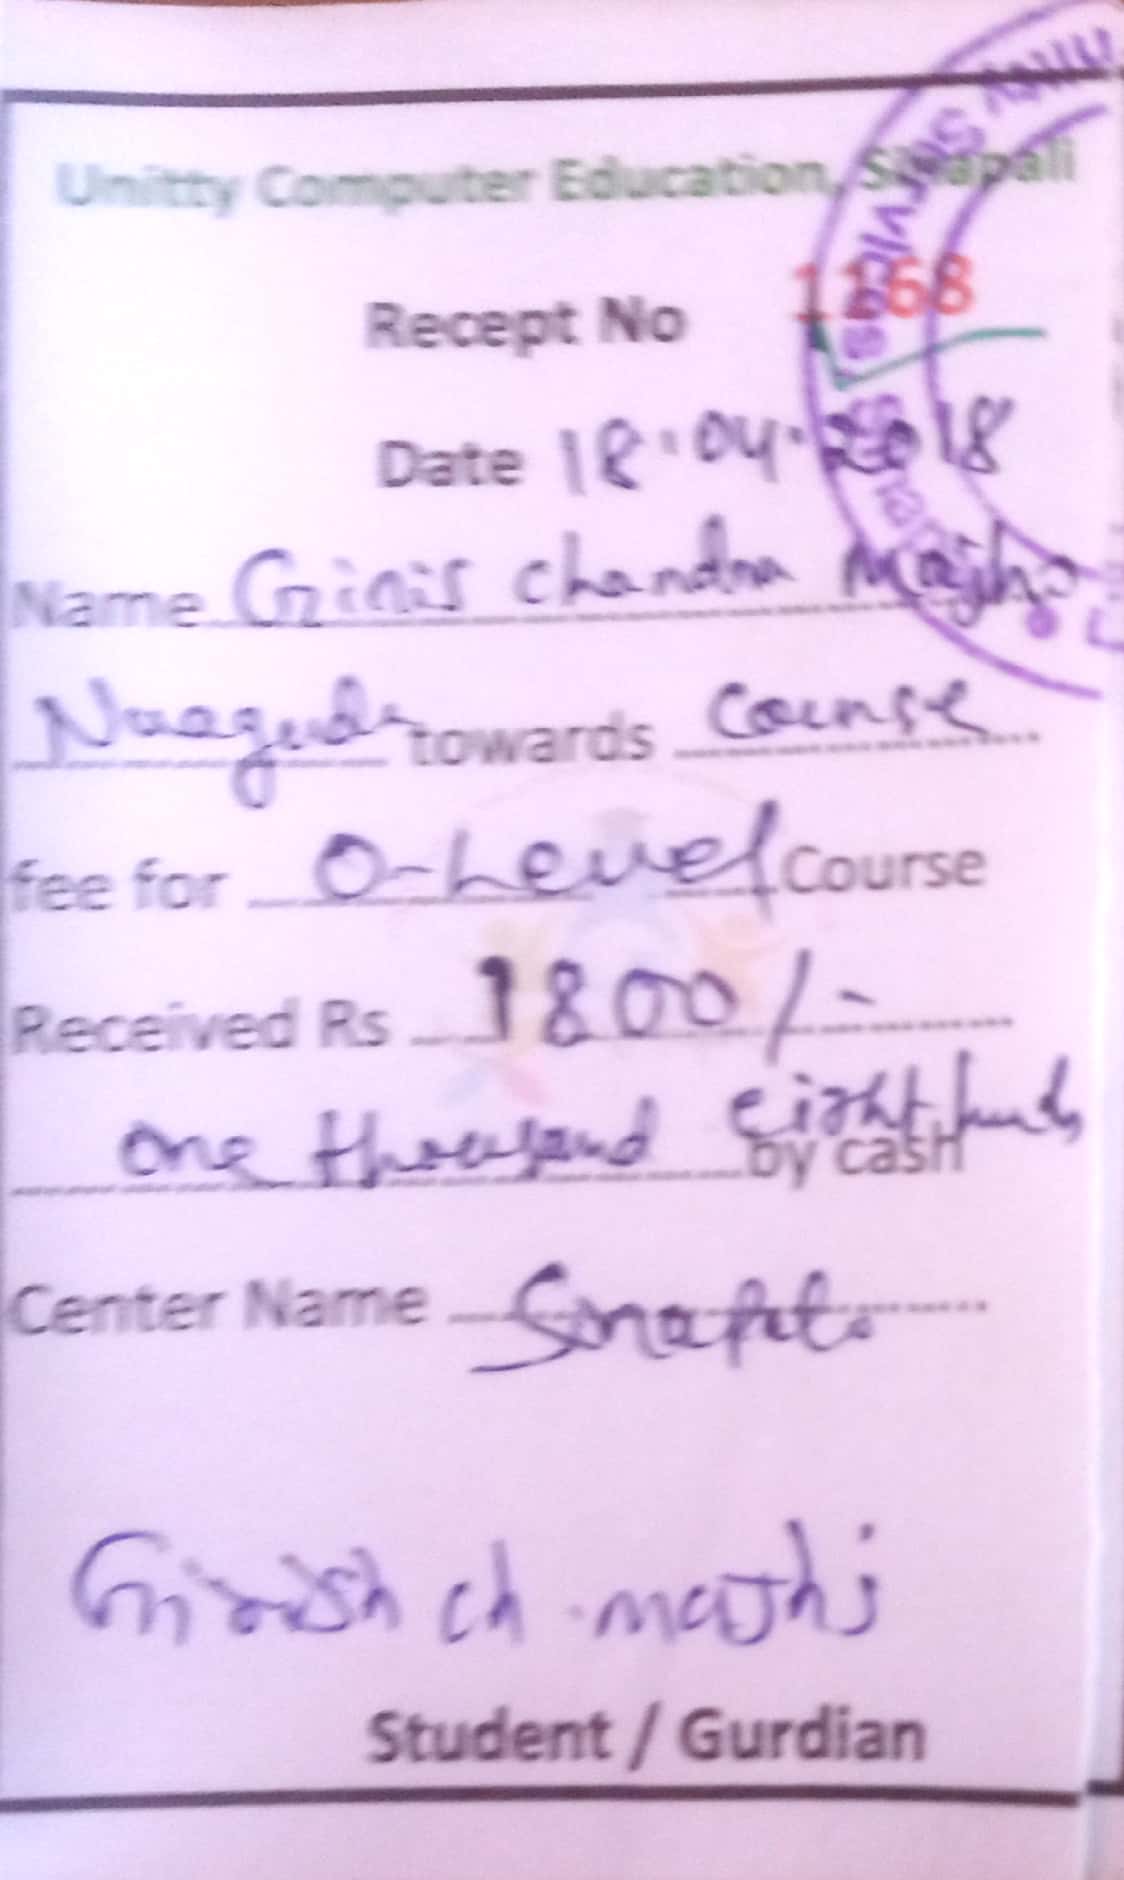 Unitty Computer Education, Sinapali
Recept No 1168
Date 18.04.2018
Name Giris Chandra Majhi
Nuaguda towards Course
fee for O-Level Course
Received Rs 1800/-
one thousand eight hundr by cash
Center Name Sinapali
Girish ch. majhi
Student / Gurdian